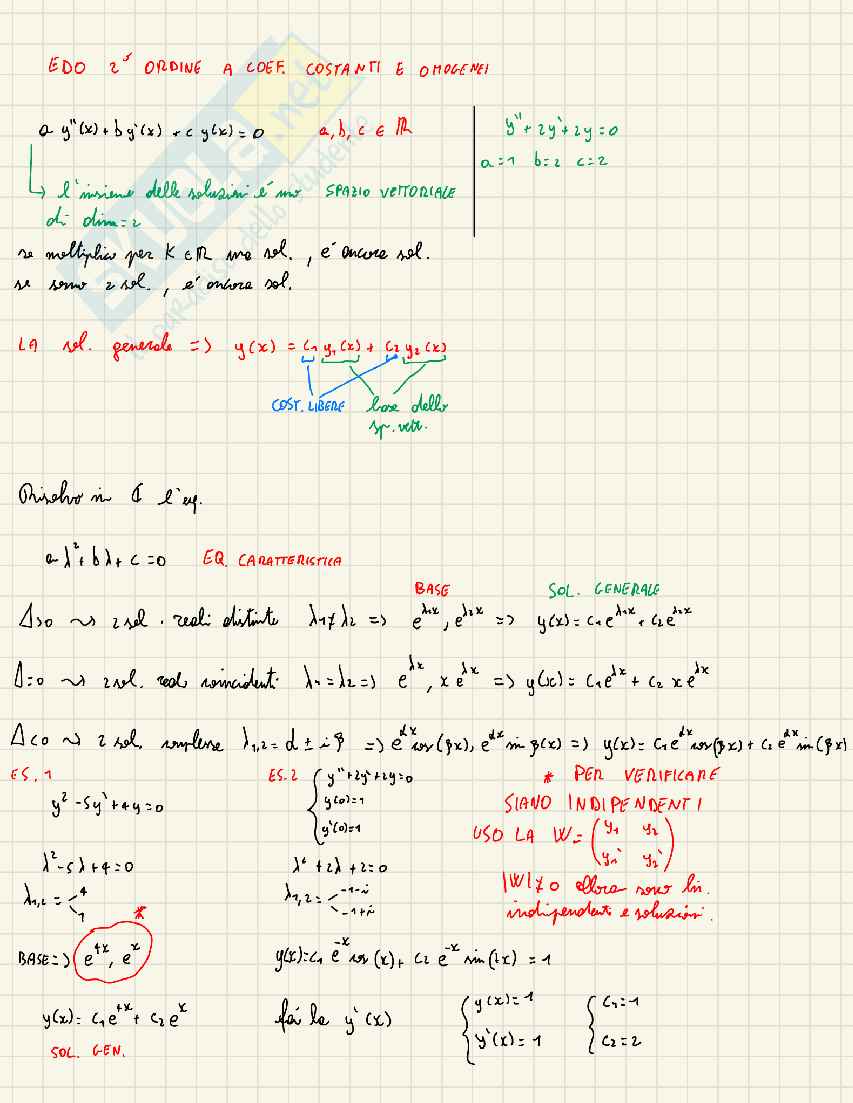 EDO 2° ORDINE A COEF. COSTANTI E OMOGENEI
a y''(x) + b y'(x) + c y(x) = 0 a, b, c ∈ ℝ
y'' + 2y' + 2y = 0
a=1 b=2 c=2
l'insieme delle soluzioni é uno SPAZIO VETTORIALE
di dim=2
se moltiplico per K ∈ ℝ una sol., é ancora sol.
se sommo 2 sol., é ancora sol.
LA sol. generale => y(x) = C1 y1(x) + C2 y2(x)
COST. LIBERE base dello
sp. vett.
Risolvo in ℂ l'eq.
aλ² + bλ + c = 0 EQ. CARATTERISTICA
BASE SOL. GENERALE
Δ>0 ~> 2 sol. reali distinte λ1≠λ2 => e^λ1x, e^λ2x => y(x) = C1e^λ1x + C2e^λ2x
Δ=0 ~> 2 sol. reale coincidenti λ1=λ2 => e^λx, x e^λx => y(x) = C1e^λx + C2 x e^λx
Δ<0 ~> 2 sol. complesse λ1,2 = α ± iβ => e^αx cos(βx), e^αx sin β(x) => y(x) = C1e^αx cos(βx) + C2 e^αx sin(βx)
ES. 1
y² - 5y' + 4y = 0
λ² - 5λ + 4 = 0
λ1,2 = 4
1
*
BASE => e^4x, e^x
y(x) = C1e^4x + C2e^x
SOL. GEN.
ES. 2 y'' + 2y' + 2y = 0
y(0) = 1
y'(0) = 1
λ² + 2λ + 2 = 0
λ1,2 = -1-i
-1+i
y(x) = C1 e^-x cos(x) + C2 e^-x sin(2x) = 1
fai la y'(x)
y(x) = 1
y'(x) = 1
C1 = 1
C2 = 2
* PER VERIFICARE
SIANO INDIPENDENTI
USO LA W = (y1 y2
y1' y2')
|W| ≠ 0 allora sono lin.
indipendenti e soluzioni.
SKUOLA.net
il paradiso dello studente